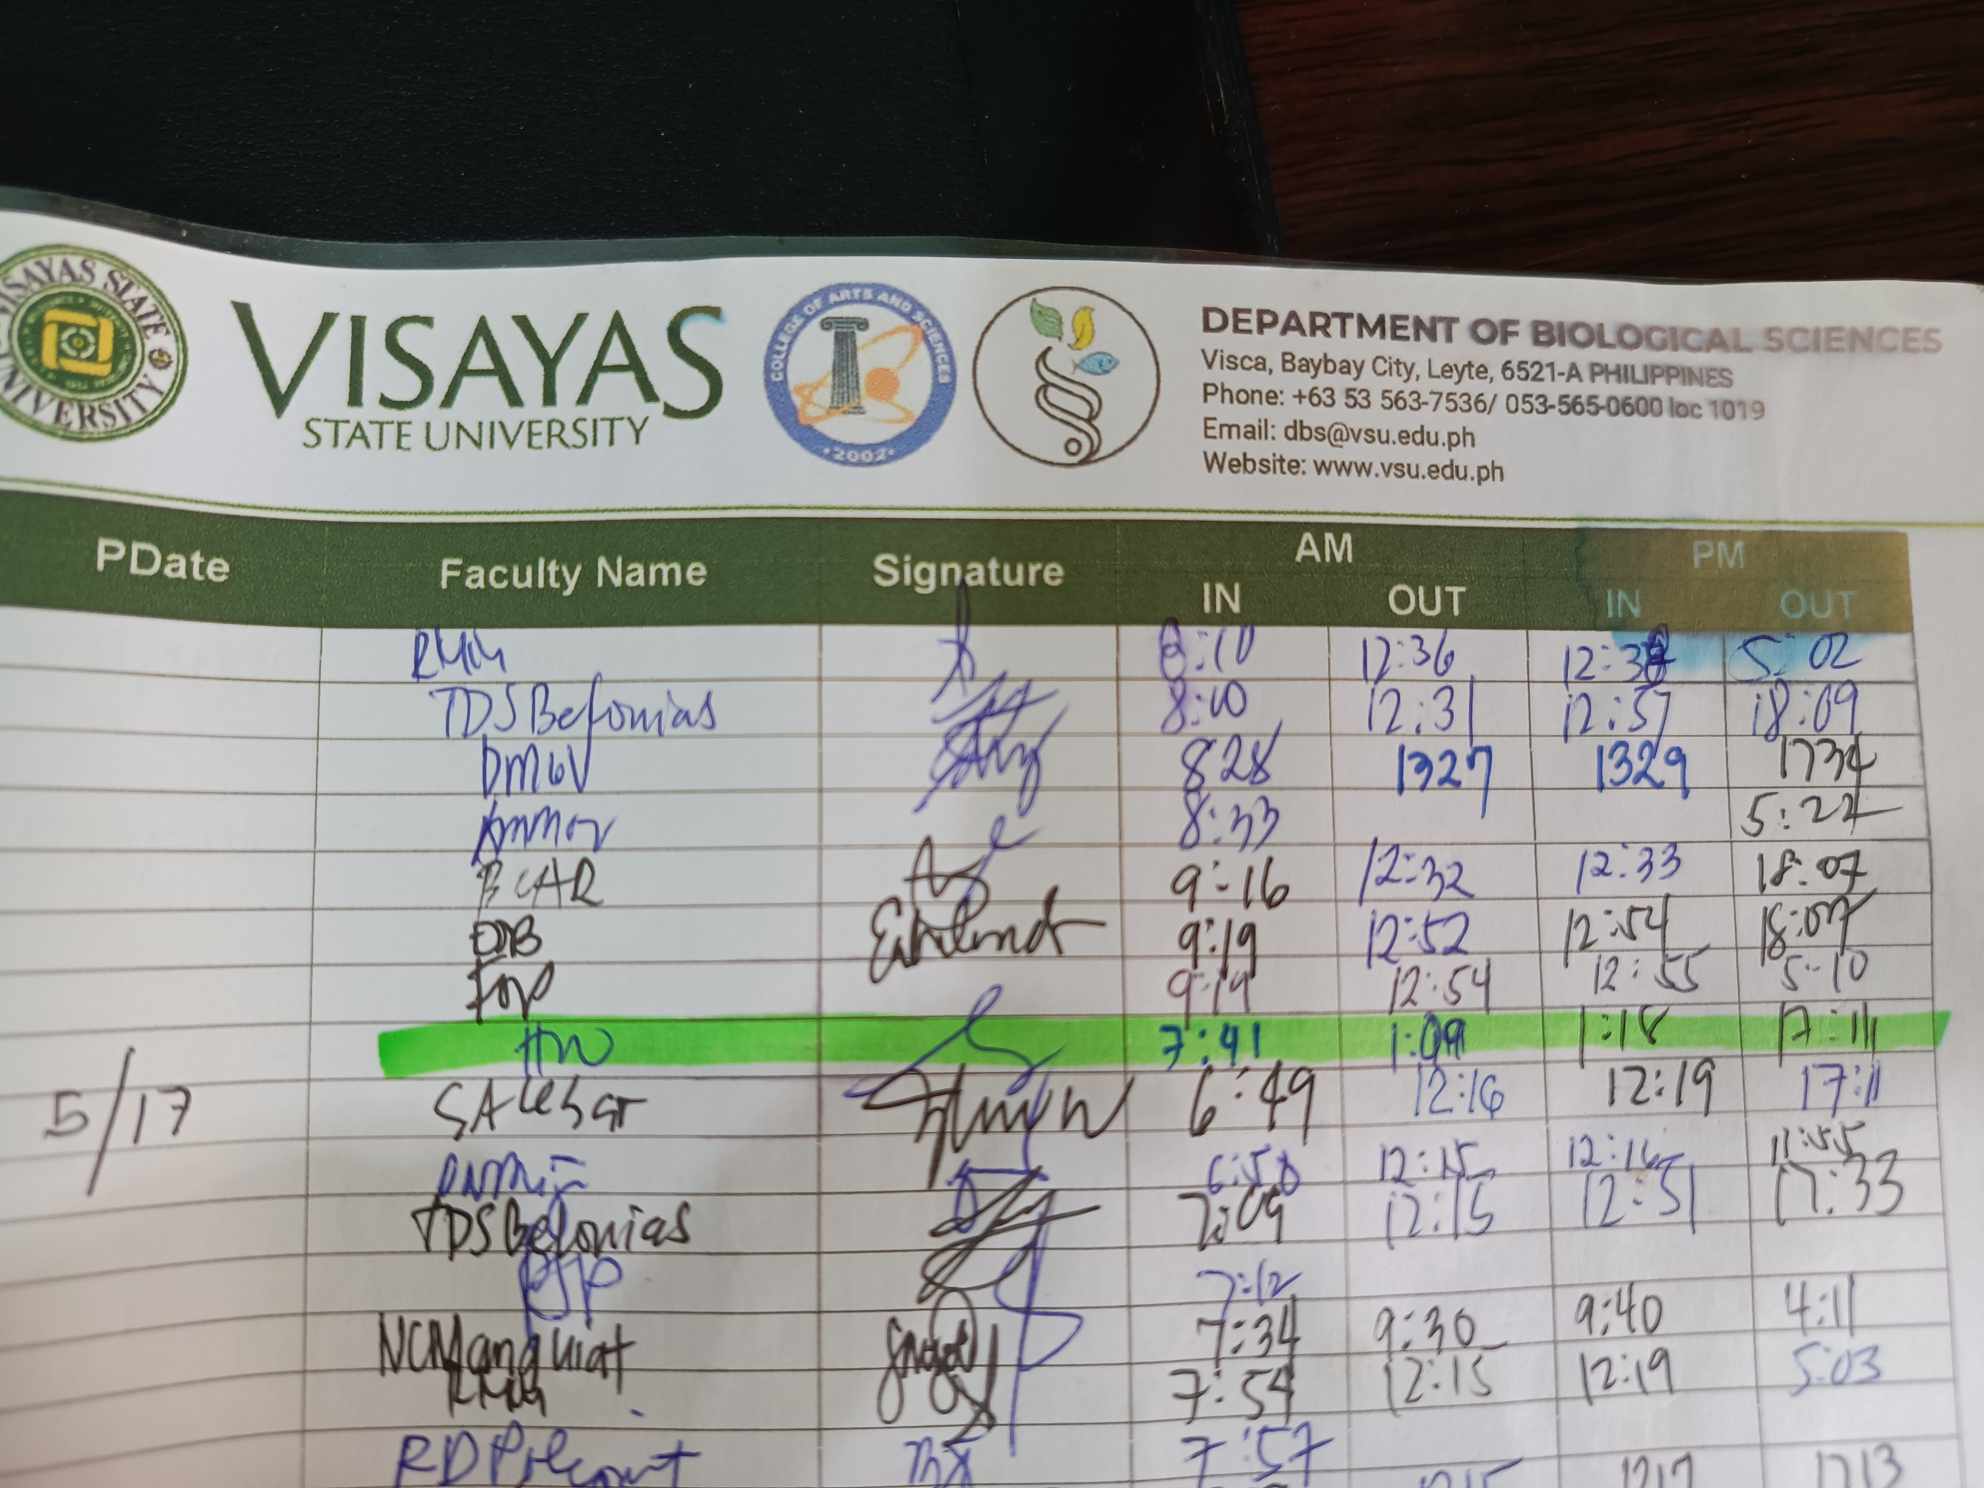 VISAYAS STATE UNIVERSITY
VISAYAS
STATE UNIVERSITY
COLLEGE OF ARTS AND SCIENCES
2002
DEPARTMENT OF BIOLOGICAL SCIENCES
Visca, Baybay City, Leyte, 6521-A PHILIPPINES
Phone: +63 53 563-7536/ 053-565-0600 loc 1019
Email: dbs@vsu.edu.ph
Website: www.vsu.edu.ph
PDate Faculty Name Signature AM PM
IN OUT IN OUT
8:10 12:36 5:02
TDSBefonias 8:10 12:31 12:57 18:09
DMGV 828 1327 1329 1734
8:33 5:22
BCAR 9:16 12:32 12:33 18:07
9:19 12:52 12:54 18:07
9:19 12:54 12:55 5:10
7:41 1:09 1:18 17:11
5/17 6:49 12:16 12:19 17:11
6:58 12:15 12:16
TDSBefonias 7:09 12:15 12:51 17:33
RJP 7:12
NCMangquiat 7:34 9:30 9:40 4:11
7:54 12:15 12:19 5:03
7:57
1215 1217 1713